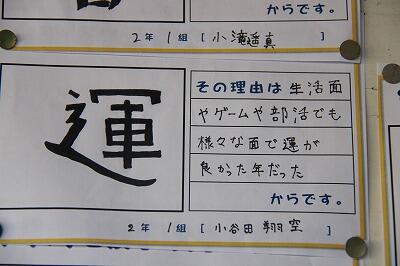 からです。
2年 1組 [ 小滝遥真
運
その理由は 生活面
やゲームや部活でも
様々な面で運が
良かった年だった
からです。
2年 1組 [ 小谷田 翔空 ]